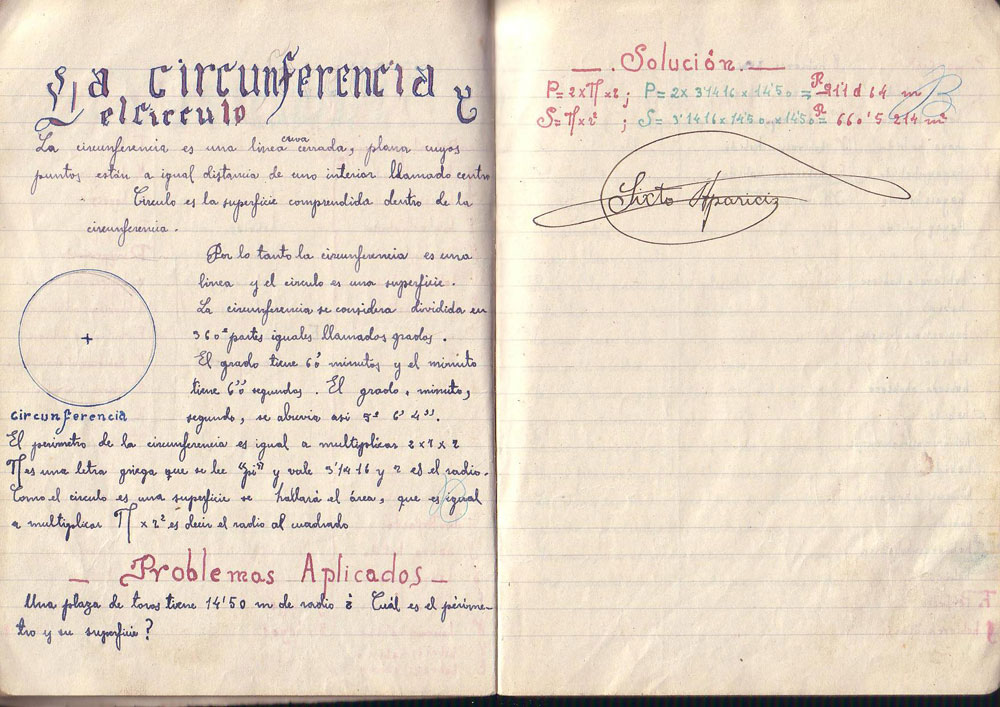 La circunferencia y
el circulo
La circunferencia es una linea curva cerrada, plana cuyos
puntos están a igual distancia de uno interior llamado centro
Circulo es la superficie comprendida dentro de la
circunferencia.
Por lo tanto la circunferencia es una
linea y el circulo es una superficie.
La circunferencia se considera dividida en
360º partes iguales llamados grados.
El grado tiene 60' minutos y el minuto
tiene 60'' segundos. El grado, minuto,
segundo, se abrevia asi 5º 6' 4''.
circunferencia
El perimetro de la circunferencia es igual a multiplicar 2 x π x r
π es una letra griega que se lee "pi" y vale 3'1416 y r es el radio.
Como el circulo es una superficie se hallará el área, que es igual
a multiplicar π x r² es decir el radio al cuadrado
— Problemas Aplicados —
Una plaza de toros tiene 14'50 m de radio ¿ Cuál es el périme-
tro y su superficie?
— . Solución . —
P = 2 x π x r ; P = 2 x 3'1416 x 14'50 = R 91'1064 m
S = π x r² ; S = 3'1416 x 14'50 x 14'50 = R 660'5214 m²
B
Sixto Aparicio